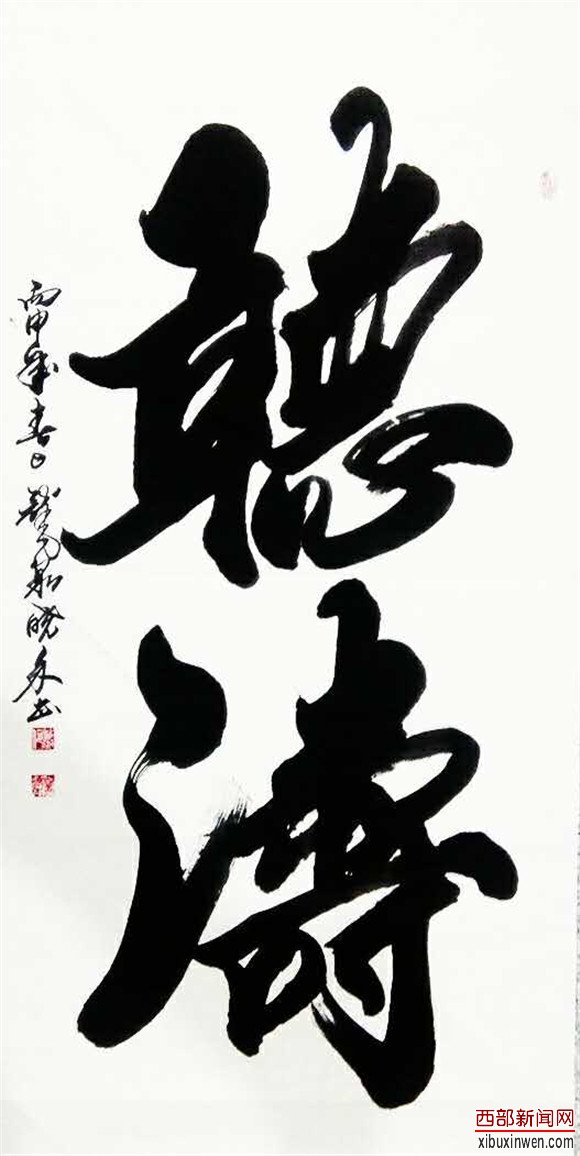 聽濤
丙申年春日
晓
书
西部新闻网
xibuxinwen.com